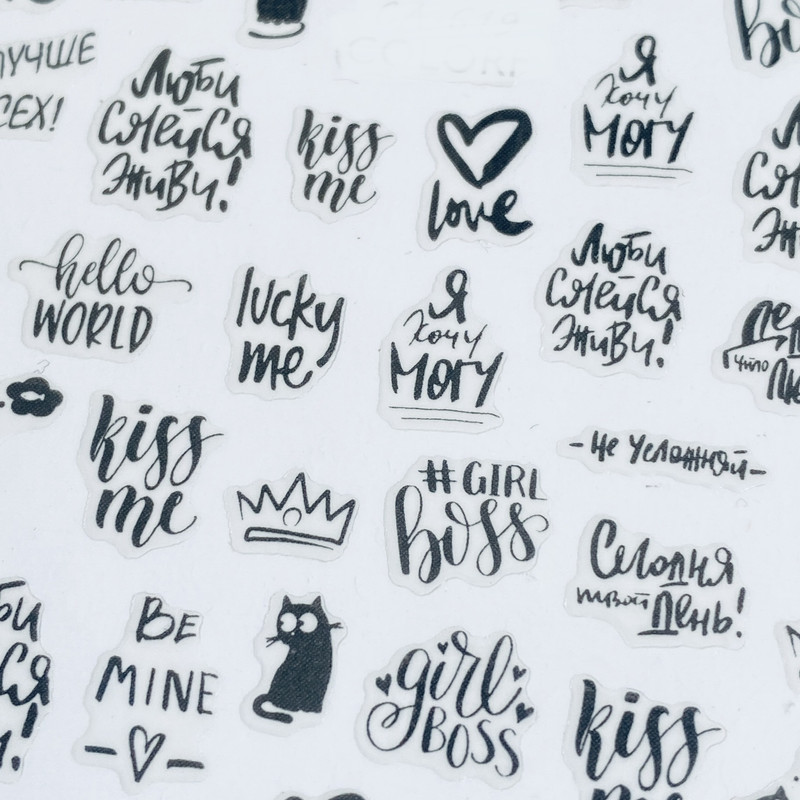 ЛУЧШЕ
ВСЕХ!
Люби
Смейся
Живи!
kiss
me
love
Я
хочу
Могу
hello
WORLD
lucky
me
Я
хочу
Могу
Люби
Смейся
Живи!
что
kiss
me
#GIRL
boss
- Не усложняй -
Сегодня
твой День!
BE
MINE
girl
BOSS
kiss
me